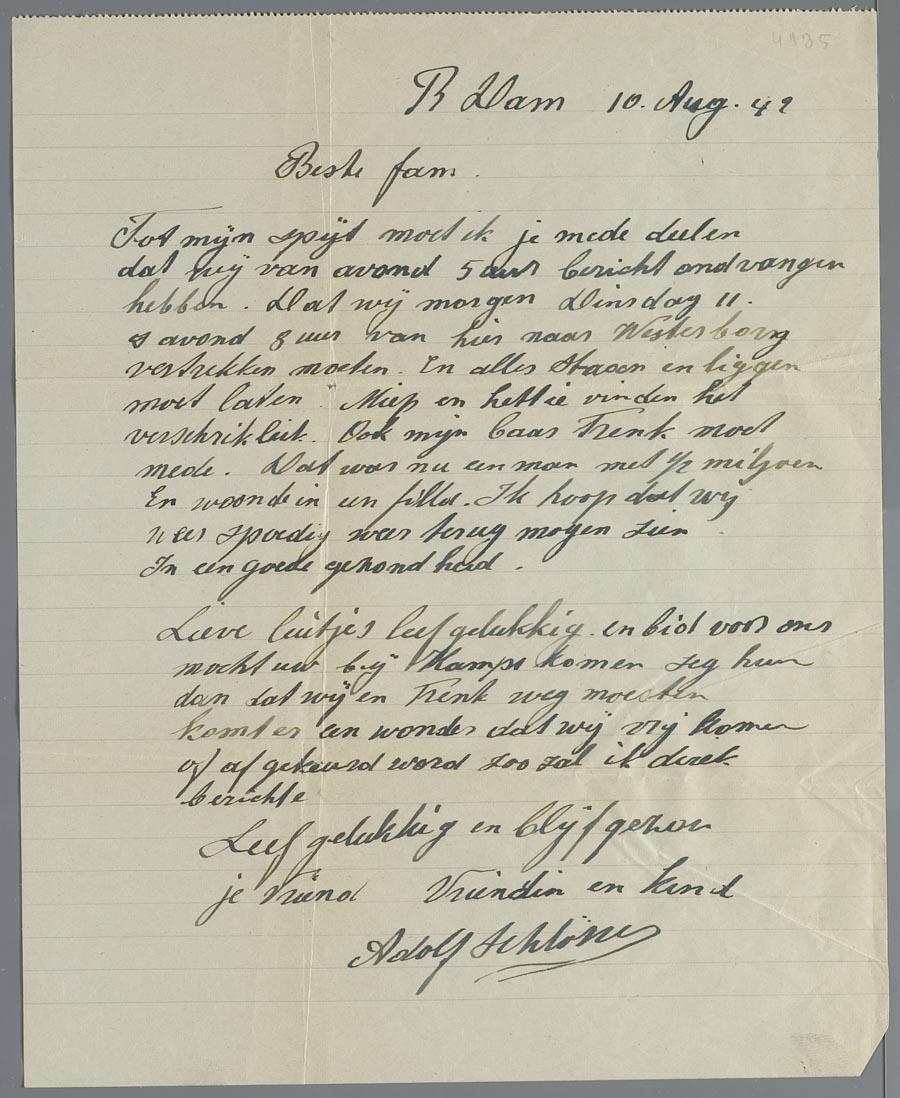 4935
R Dam 10. Aug. 42
Beste fam.
Tot mijn spijt moet ik je mede deelen
dat wij van avond 5 uur bericht ondvangen
hebben. Dat wij morgen Dinsdag 11.
s avond 8 uur van hier naar Westerborg
vertrekken moeten. En alles staan en liggen
moet laten. Miep en hettie vinden het
verschriklik. Ook mijn baas Frenk moet
mede. Dat was nu een man met ½ miljoen
En woonde in een filla. Ik hoop dat wij
weer spoedig weer terug mogen zien.
In een goede gezond heid.
Lieve luitjes leef gelukkig. en bid voor ons
mocht uw bij Kamps komen zeg hun
dan dat wij en Frenk weg moesten
komt er een wonder dat wij vrij komen
of af gekeurd word zoo zal ik direk
berichte
Leef gelukkig en blijf gezon
je Vriend Vriendin en kind
Adolf